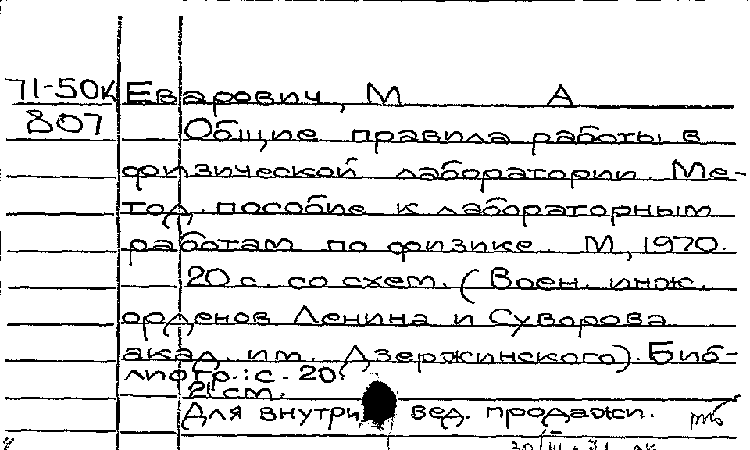 71-50К Еварович, М А
807 Общие правила работы в
физической лаборатории. Ме-
тод. пособие к лабораторным
работам по физике. М, 1970.
20 с. со схем. (Воен. инж.
орденов Ленина и Суворова
акад. им. Дзержинского). Биб-
лиогр.: с. 20.
21 см.
Для внутри вед. продажи.